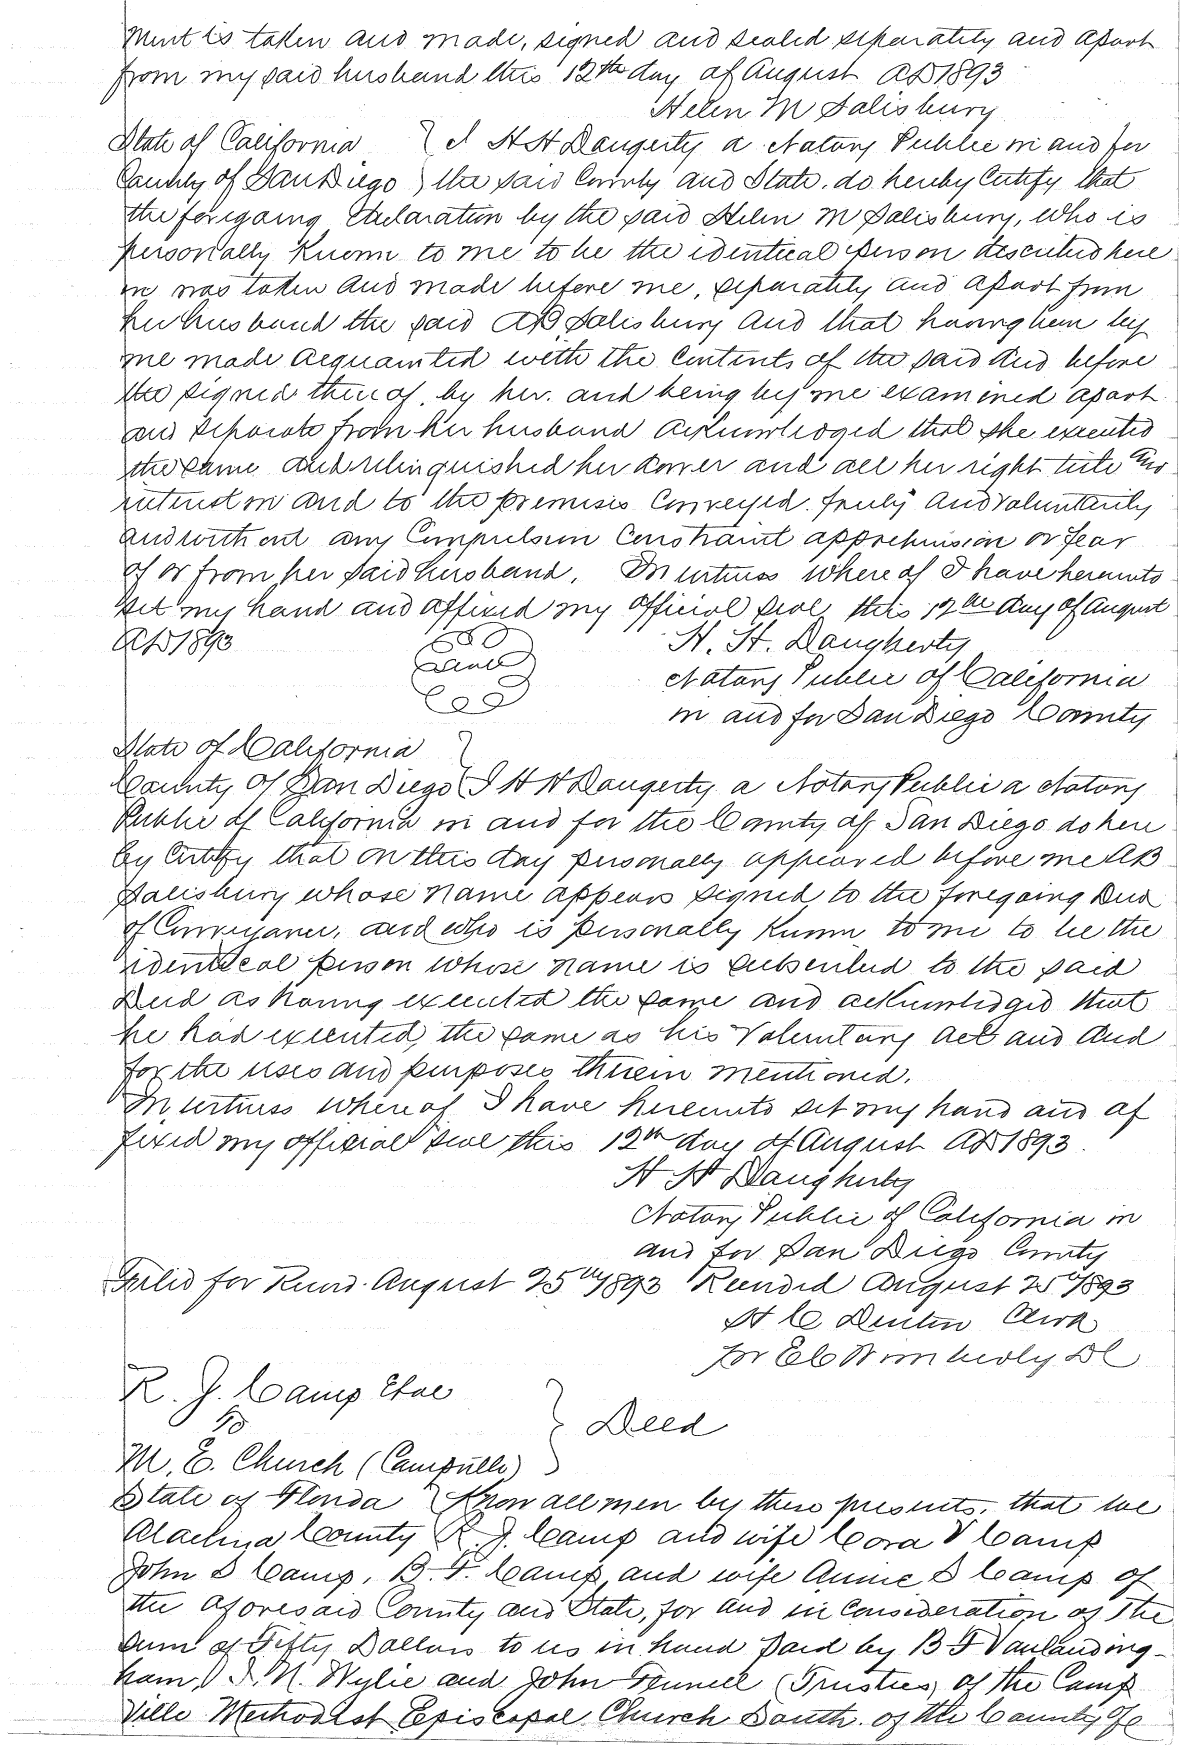 ment is taken and made, signed and sealed separately and apart
from my said husband this 12th day of August AD 1893
Helen M Salisbury
State of California } I H H Daugerty a Notary Public in and for
County of San Diego } the said County and State. do hereby Certify that
the foregoing declaration by the said Helen M Salisbury, who is
personally Known to me to be the identical person described here
in was taken and made before me, separately and apart from
her husband the said AB Salisbury And that having been by
me made acquainted with the contents of the said deed before
the signed thereof, by her. and being by me examined apart
and separate from her husband acknowledged that she executed
the same and relinquished her dower and all her right title and
interest in and to the premises Conveyed. freely and voluntarily
and without any Compulsion Constraint apprehension or fear
of or from her said husband. In witness where of I have hereunto
set my hand and affixed my Official Seal this 12th day of August
AD 1893
Seal
H. H. Daugherty
Notary Public of California
in and for San Diego County
State of California }
County of San Diego } I H H Daugerty a Notary Public a Notary
Public of California in and for the County of San Diego do here
by Certify that on this day personally appeared before me AB
Salisbury whose name appears signed to the foregoing Deed
of Conveyance, and who is personally Known to me to be the
identical person whose name is subscribed to the said
Deed as having executed the same and acknowledged that
he had executed the same as his Voluntary Act and deed
for the uses and purposes therein mentioned.
In witness whereof I have hereunto set my hand and af
fixed my official seal this 12th day of August AD 1893.
H H Daugherty
Notary Public of California in
and for San Diego County
Filed for Record August 25th 1893 Recorded August 25th 1893
H C Denton Clerk
for E C Wimberly DC
R. J. Camp Etae
To } Deed
M. E. Church (Campville)
State of Florida } Know all men by these presents, that we
Alachua County } R. J. Camp and wife Cora V Camp
John S Camp, B. F. Camp, and wife Annie S Camp of
the aforesaid County and State, for and in Consideration of The
Sum of Fifty Dollars to us in hand paid by B F Vanlanding-
ham, N. Wylie and John Fennell (Trusties) of the Camp
Ville Methodist Episcopal Church South. of the County of